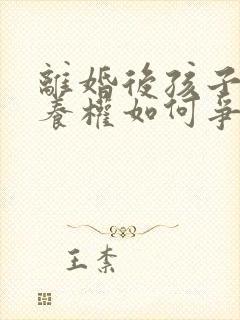 離婚後孩子
養權如何爭
王柰